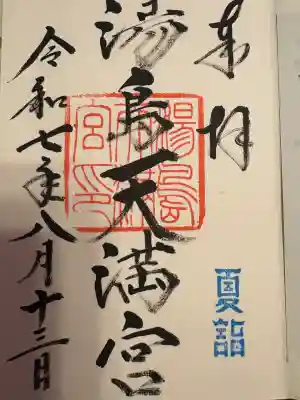 奉拝
夏詣
湯島天満宮
令和七年八月十三日